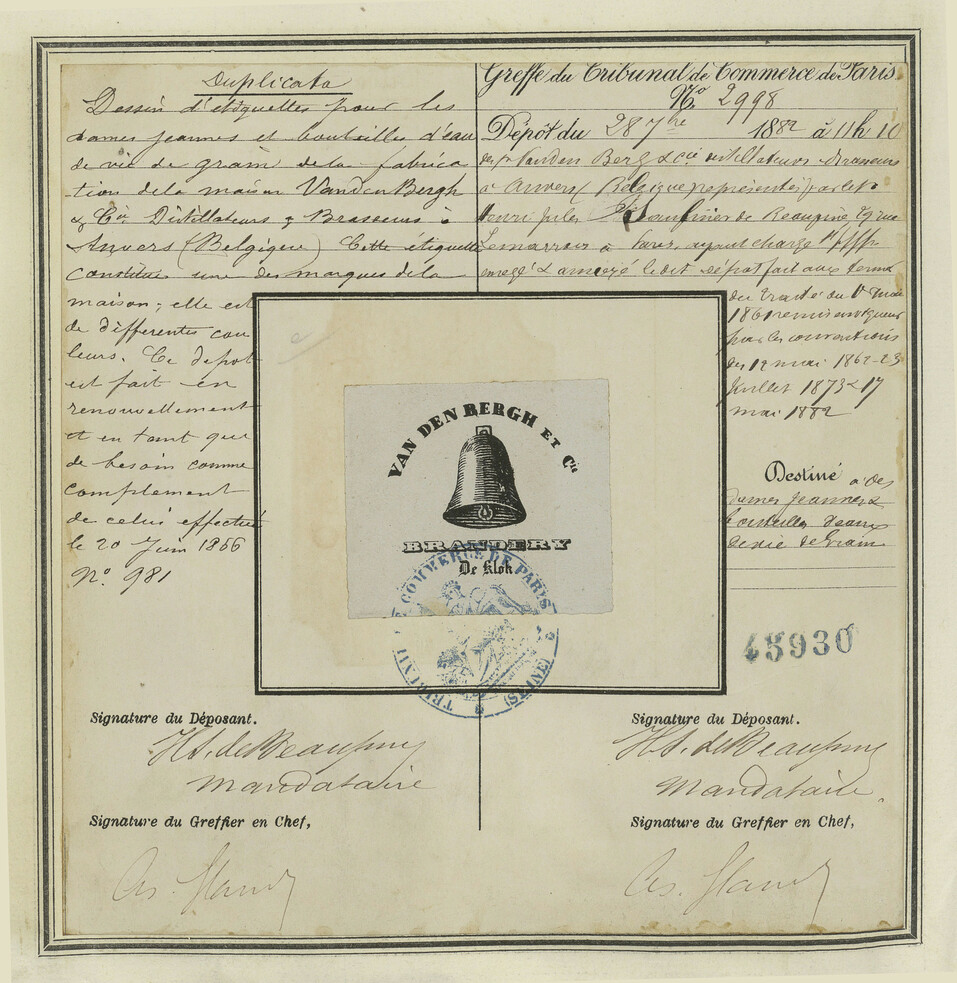 Duplicata
Dessin d'étiquettes pour les
dames jeannes et bouteilles d'eau
de vie de grain de la fabrica
tion de la maison Vanden Bergh
& Cie Distillateurs & Brasseurs à
Anvers (Belgique) Cette étiquette
constitue une des marques de la
maison; elle est
de différentes cou
leurs. Ce depot
est fait en
renouvellement
et en tant que
de besoin comme
complement
de celui effectué
le 20 Juin 1866
No. 981
Greffe du Tribunal de Commerce de Paris
No 2998
Dépôt du 28 7bre 1882 à 11h 10
des Vanden Berg & cie distillateurs brasseurs
à Anvers (Belgique) représentés par le
henri jules de Beaupré rue
Lemarrois à Paris, ayant charge
& le dit dépôt fait aux termes
du traité du 1er
1861 remis en vigueur
par les conventions
des 12 mai 1862-23
Juillet 1873 & 17
mai 1882
Destiné à des
dames Jeannes &
bouteilles d'eaux
de vie de Grain
VAN DEN BERGH ET Cie
BRANDERY
De Klok
TRIBUNAL DE COMMERCE DE PARIS
(SEINE)
45930
Signature du Déposant.
Mandataire
Signature du Greffier en Chef,
Signature du Déposant.
Mandataire
Signature du Greffier en Chef,